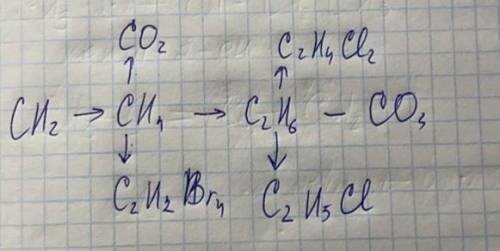 CO₂ C₂H₄Cl₂
↑ ↑
CH₂ → CH₄ → C₂H₆ — CO₃
↓ ↓
C₂H₂Br₄ C₂H₅Cl